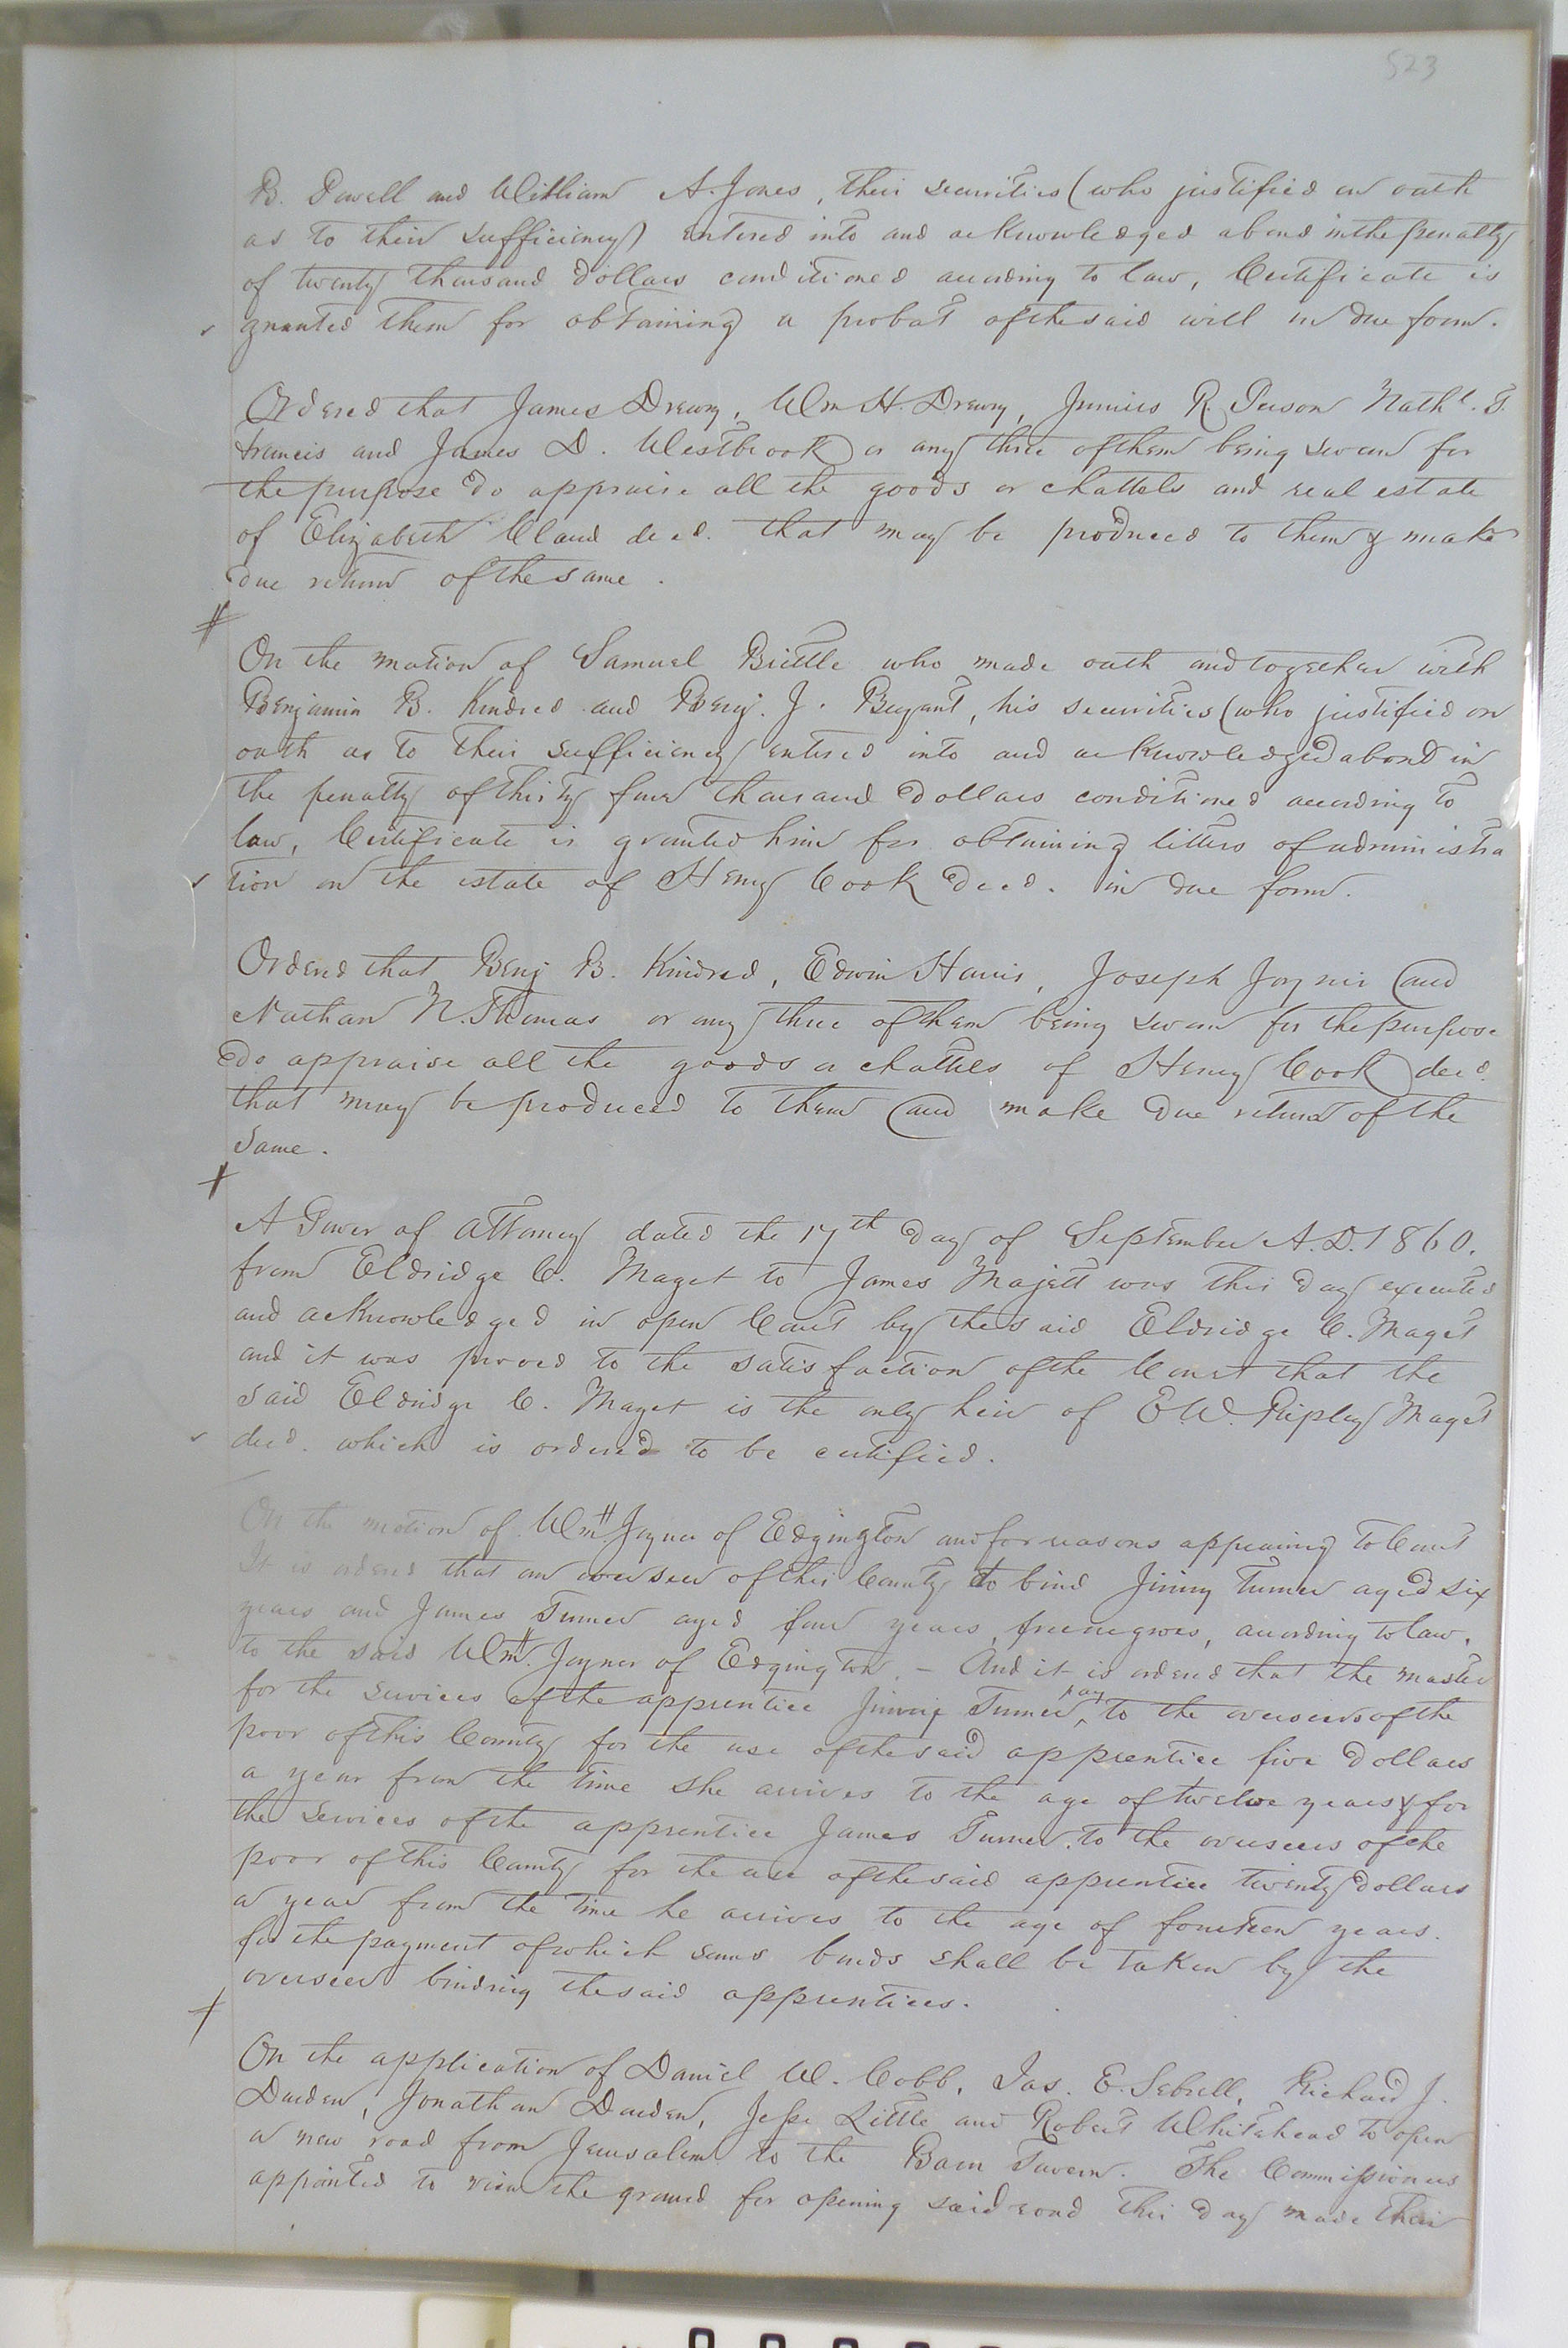 523
B. Powell and William A. Jones, their securities (who justified on oath
as to their sufficiency) entered into and acknowledged a bond in the penalty
of twenty thousand dollars conditioned according to law, Certificate is
granted them for obtaining a probat of the said will in due form.
Ordered that James Drewry, Wm H. Drewry, Junius R. Person Nathl. T.
Francis and James D. Westbrook or any three of them being sworn for
the purpose do appraise all the goods or chattels and real estate
of Elizabeth Claud decd. that may be produced to them & make
due return of the same.
On the motion of Samuel Brittle who made oath and together with
Benjamin B. Kindred and Benj. J. Bryant, his securities (who justified on
oath as to their sufficiency entered into and acknowledged a bond in
the penalty of thirty four thousand dollars conditioned according to
law, Certificate is granted him for obtaining letters of administra
tion on the estate of Henry Cook decd. in due form.
Ordered that Benj B. Kindred, Edwin Harris, Joseph Joyner and
Nathan N. Thomas or any three of them being sworn for the purpose
do appraise all the goods or chattels of Henry Cook decd.
that may be produced to them and make due return of the
same.
A Power of attorney dated the 17th day of September A.D. 1860.
from Eldridge C. Maget to James Majett was this day executed
and acknowledged in open Court by the said Eldridge C. Maget
and it was proved to the satisfaction of the Court that the
said Eldridge C. Maget is the only heir of E.W. Ripley Maget
decd. which is ordered to be certified.
On the motion of Wm H. Joyner of Edgington and for reasons appearing to Court
It is ordered that an overseer of this County do bind Jinny Turner aged six
years and James Turner aged four years, free negroes, according to law,
to the said Wm H. Joyner of Edgington. - And it is ordered that the master
for the services of the apprentice Jinny Turner, pay to the overseers of the
poor of this County for the use of the said apprentice five dollars
a year from the time she arrives to the age of twelve years & for
the services of the apprentice James Turner, to the overseers of the
poor of this County for the use of the said apprentice twenty dollars
a year from the time he arrives to the age of fourteen years.
for the payment of which sums bonds shall be taken by the
overseer binding the said apprentices.
On the application of Daniel W. Cobb, Jas. E. Sebrell, Richard J.
Darden, Jonathan Darden, Jesse Little and Robert Whitehead to open
a new road from Jerusalem to the Barn Tavern. The Commissioners
appointed to view the ground for opening said road this day made their